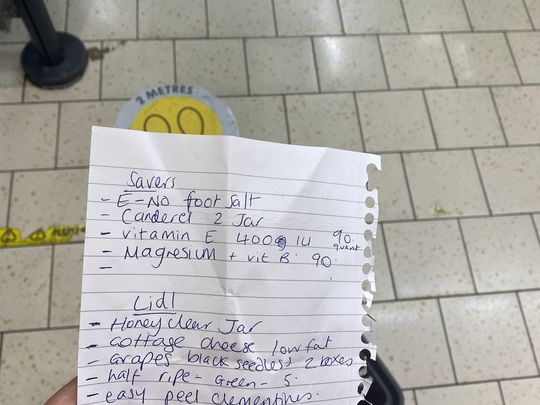 2 METRES
Savers
- E-No foot salt
- Canderel 2 Jar
- vitamin E 400 IU 90 quant
- Magnesium + vit B 90
-
Lidl
- Honey clear Jar
- cottage cheese low fat
- Grapes black seedless 2 boxes
- half ripe - Green - 5
- easy peel clementines.